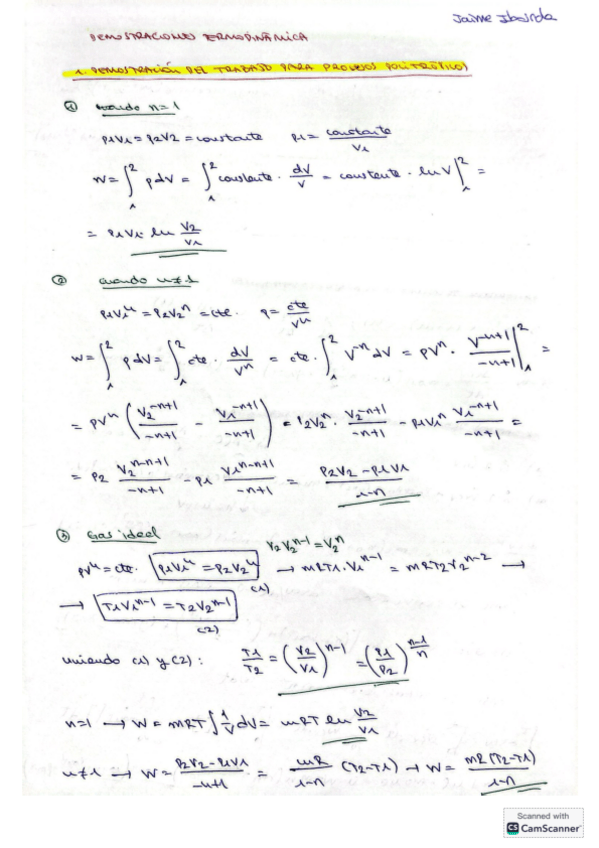 Jaime Iborda
DEMOSTRACIONES TERMODINÁMICA
1. DEMOSTRACIÓN DEL TRABAJO PARA PROCESOS POLITRÓPICOS
① cuando n=1
p1V1 = p2V2 = constante p1 = constante/V1
W = ∫₁² pdV = ∫₁² constante · dV/V = constante · ln V |₁² =
= p1V1 ln V2/V1
② cuando n≠1
p1V1ⁿ = p2V2ⁿ = cte. p = cte/Vⁿ
W = ∫₁² pdV = ∫₁² cte · dV/Vⁿ = cte · ∫₁² V⁻ⁿ dV = pVⁿ · V⁻ⁿ⁺¹/-n+1 |₁² =
= pVⁿ (V2⁻ⁿ⁺¹/-n+1 - V1⁻ⁿ⁺¹/-n+1) = p2V2ⁿ · V2⁻ⁿ⁺¹/-n+1 - p1V1ⁿ V1⁻ⁿ⁺¹/-n+1 =
= p2 V2ⁿ⁻ⁿ⁺¹/-n+1 - p1 V1ⁿ⁻ⁿ⁺¹/-n+1 = p2V2 - p1V1/1-n
③ Gas ideal
V2V2ⁿ⁻¹ = V2ⁿ
pVⁿ = cte. p1V1ⁿ = p2V2ⁿ (1) → mRT1·V1ⁿ⁻¹ = mRT2V2ⁿ⁻² →
→ T1V1ⁿ⁻¹ = T2V2ⁿ⁻¹ (2)
uniendo (1) y (2): T1/T2 = (V2/V1)ⁿ⁻¹ = (p1/p2)^(n-1/n)
n=1 → W = mRT ∫ 1/V dV = mRT ln V2/V1
n≠1 → W = p2V2 - p1V1/-n+1 = mR/1-n (T2-T1) → W = mR(T2-T1)/1-n
Scanned with
CS CamScanner